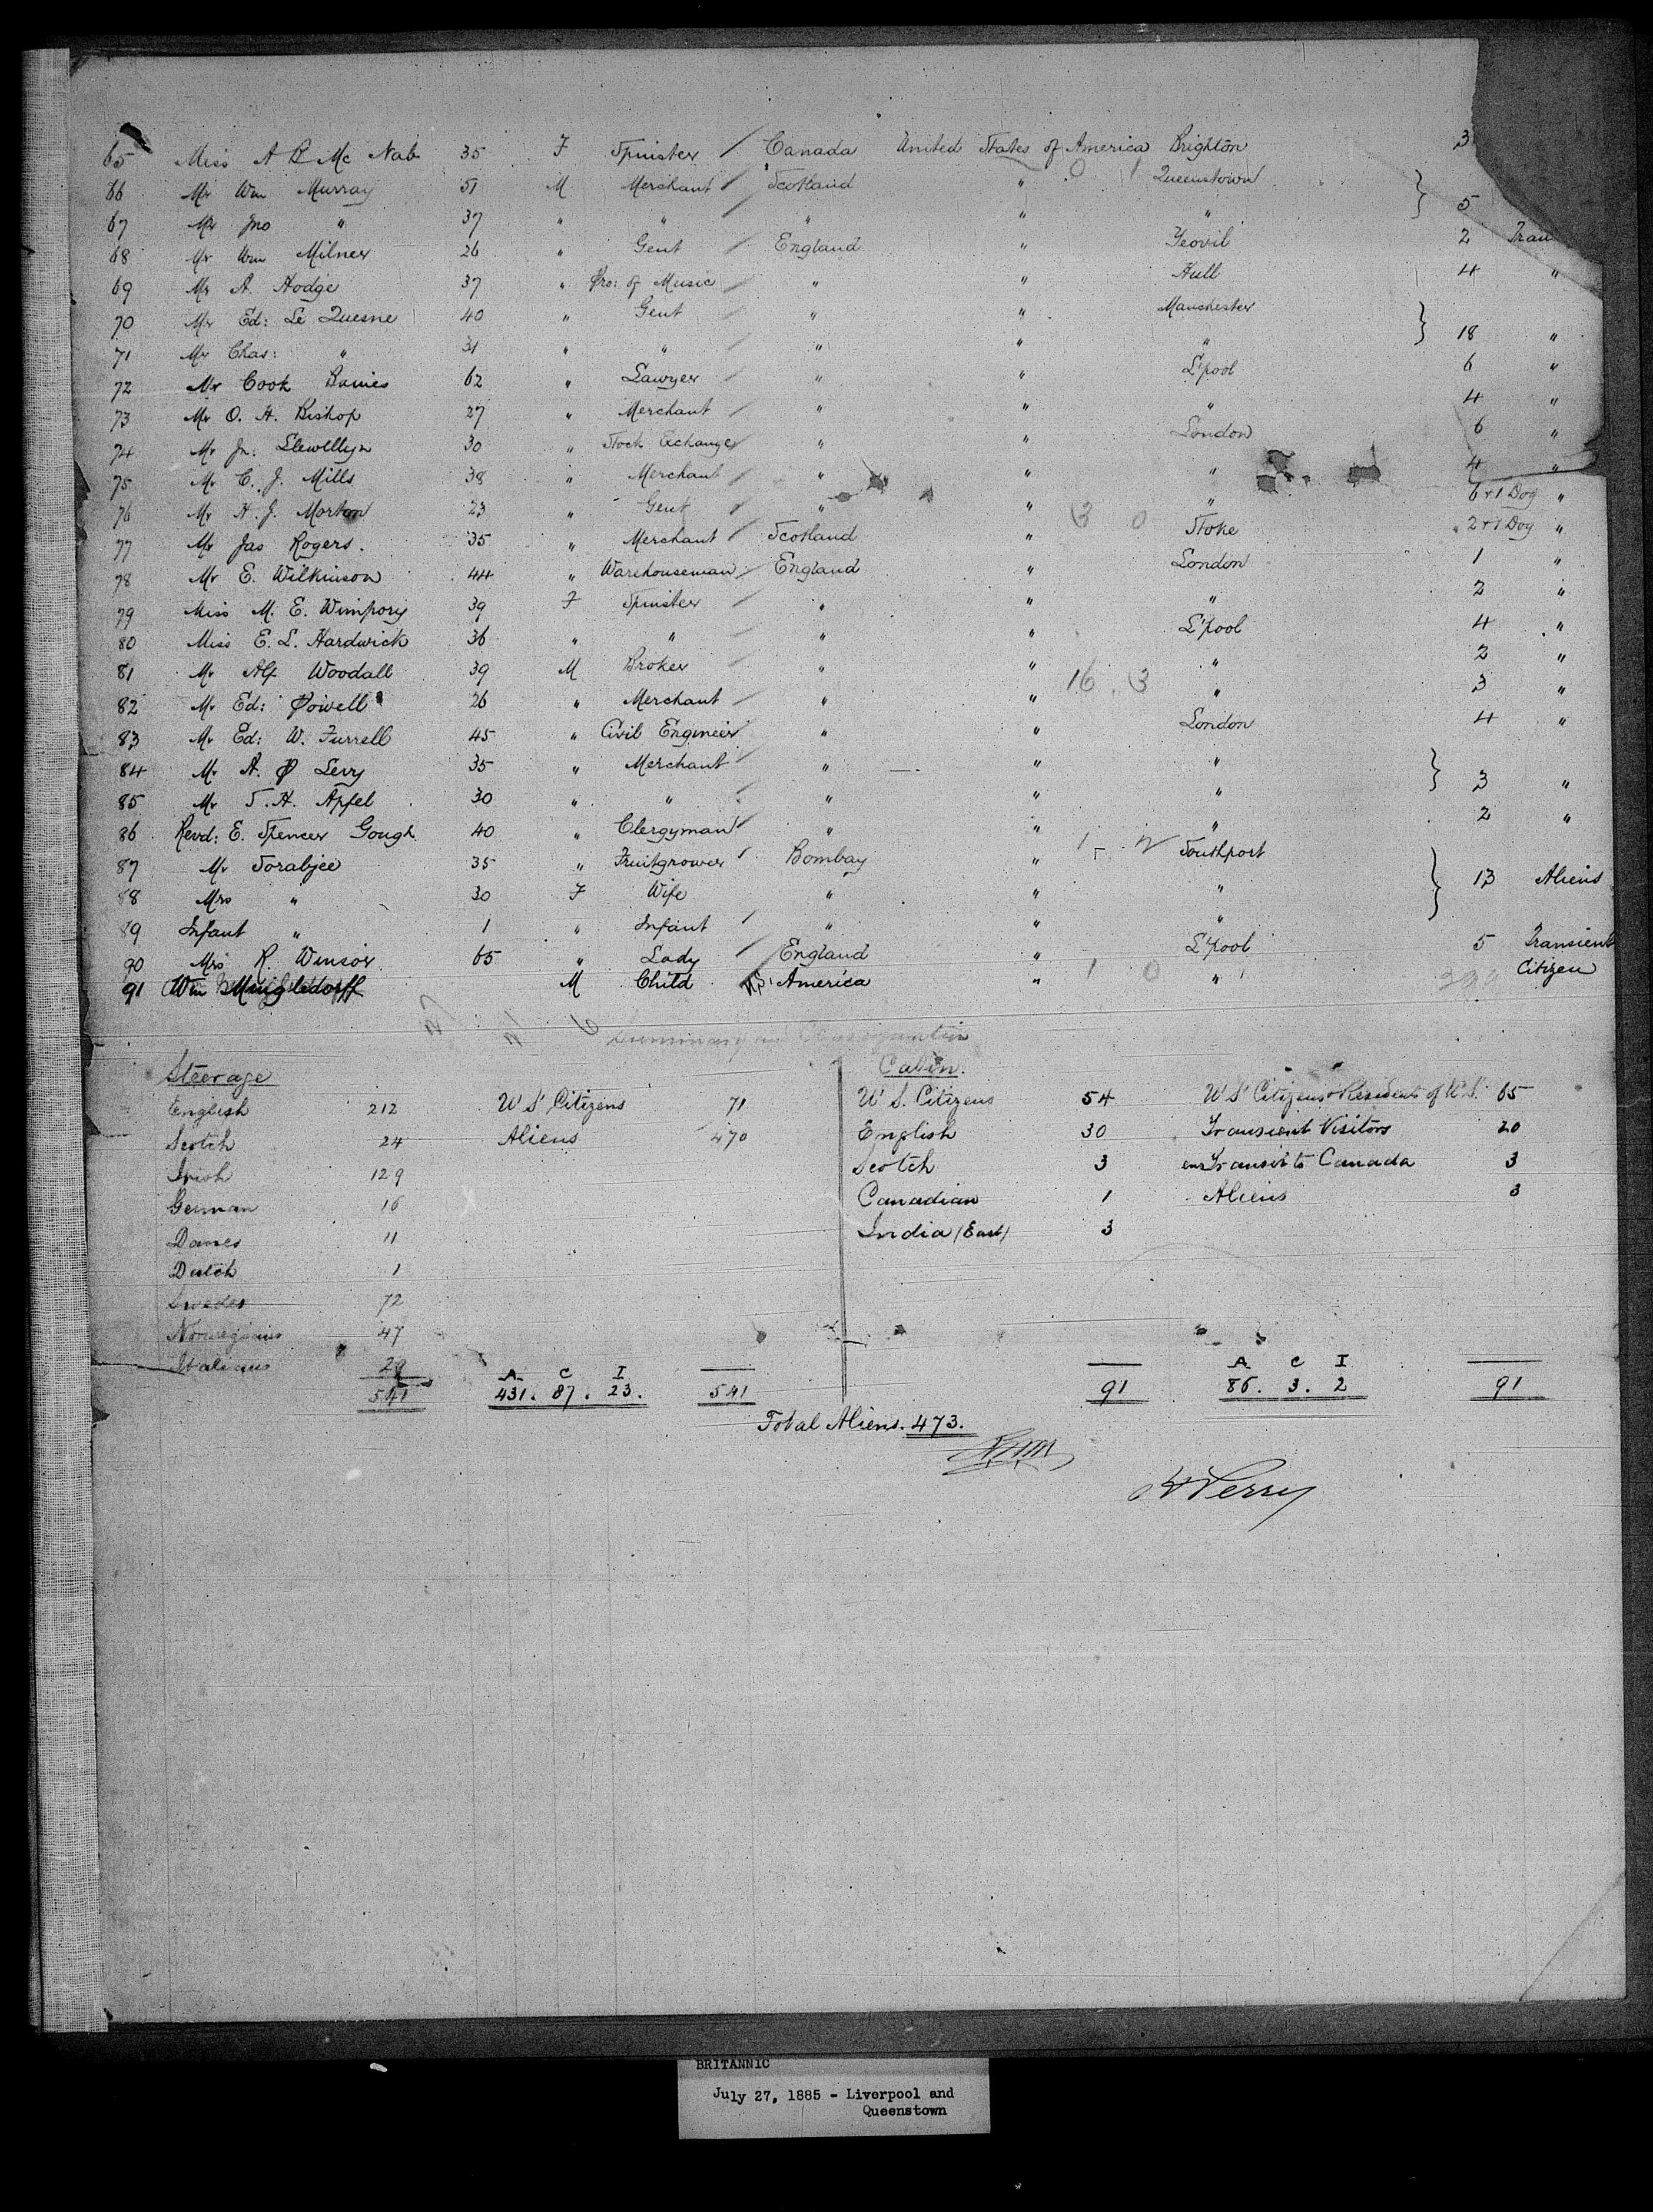 65 Miss A B Mc Nab 35 F Spinster / Canada United States of America Brighton 3
66 Mr Wm Murray 51 M Merchant / Scotland " 0 1 Queenstown } 5
67 Mr Jno " 37 " " / " " "
68 Mr Wm Milner 26 " Gent / England " Yeovil 2 Tran
69 Mr A. Hodge 37 " Pro: of Music / " " Hull 4 "
70 Mr Ed: Le Quesne 40 " Gent / " " Manchester } 18 "
71 Mr Chas: " 31 " " / " " "
72 Mr Cook 62 " Lawyer / " " L'pool 6 "
73 Mr O. H. Bishop 27 " Merchant / " " " 4 "
74 Mr Jn: Llewellyn 30 " Stock Exchange / " " London 6 "
75 Mr C. J. Mills 38 " Merchant / " " " 4 "
76 Mr H. J. Morton 23 " Gent / " " " 6 + 1 Dog "
77 Mr Jas Rogers. 35 " Merchant / Scotland " 3 0 Stoke 2 + 1 Dog "
78 Mr E. Wilkinson 44 " Warehouseman / England " London 1 "
79 Miss M. E. Wimpory 39 F Spinster / " " " 2 "
80 Miss E. L. Hardwick 36 " " / " " L'pool 4 "
81 Mr Alf Woodall 39 M Broker / " " " 2 "
82 Mr Ed: Powell 26 " Merchant / " " 16 . 3 " 3 "
83 Mr Ed: W. Furrell 45 " Civil Engineer / " " London 4 "
84 Mr A. P Levy 35 " Merchant / " " " } 3 "
85 Mr S. H. Apfel 30 " " / " " "
86 Revd: E. Spencer Gough 40 " Clergyman / " " " 2 "
87 Mr Sorabjee 35 " Fruitgrower / Bombay " Southport } 13 Aliens
88 Mrs " 30 F Wife " " "
89 Infant " 1 " Infant / " " "
90 Mrs R. Winsor 65 " Lady / England " L'pool 5 Transient
91 Wm Mingledorff M Child U.S. America " 1 0 " Citizen
Summary
Steerage Cabin.
English 212 U S Citizens 71 U S. Citizens 54 U S Citizens & Residents of U.S. 65
Scotch 24 Aliens 470 English 30 Transient Visitors 20
Irish 129 Scotch 3 Transit to Canada 3
German 16 Canadian 1 Aliens 3
Danes 11 India (East) 3
Dutch 1
Swedes 72
Norwegians 47
Italians 29 A C I A C I
541 431. 87. 23. 541 91 86. 3. 2 91
Total Aliens. 473.
Perry
BRITANNIC
July 27, 1885 - Liverpool and
Queenstown